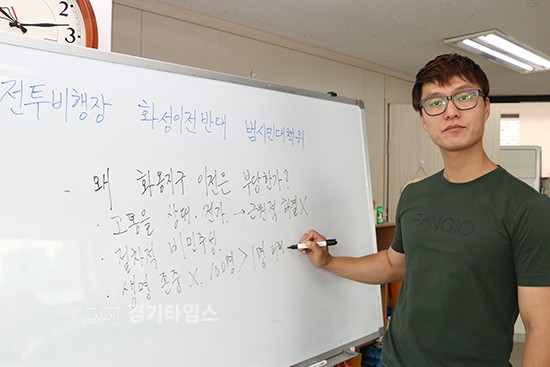 전투비행장 화성이전반대 범시민대책위
- 왜 화옹지구 이전은 부당한가?
· 고통을 상대. 전가. → 근원적 해결 X
· 절차적 비민주성.
· 생명 존중 X. 100명 > 1명
GGT 경기타임스
FANGIO
2
3
4